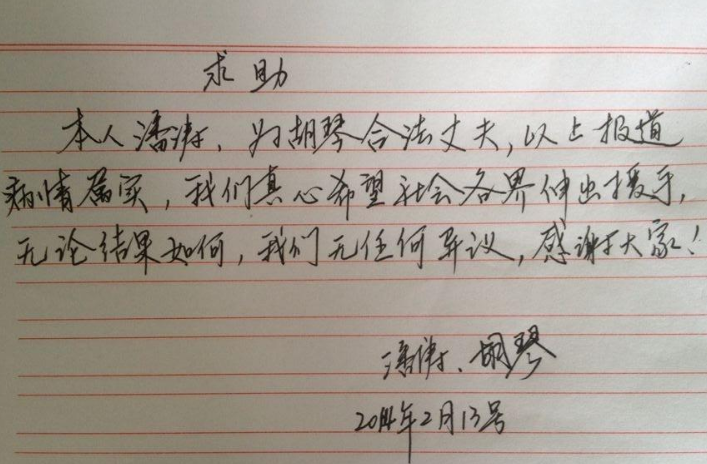 求助
本人潘涛，为胡琴合法丈夫，以上报道
病情属实，我们真心希望社会各界伸出援手，
无论结果如何，我们无任何异议，感谢大家！
潘涛、胡琴
2014年2月13号